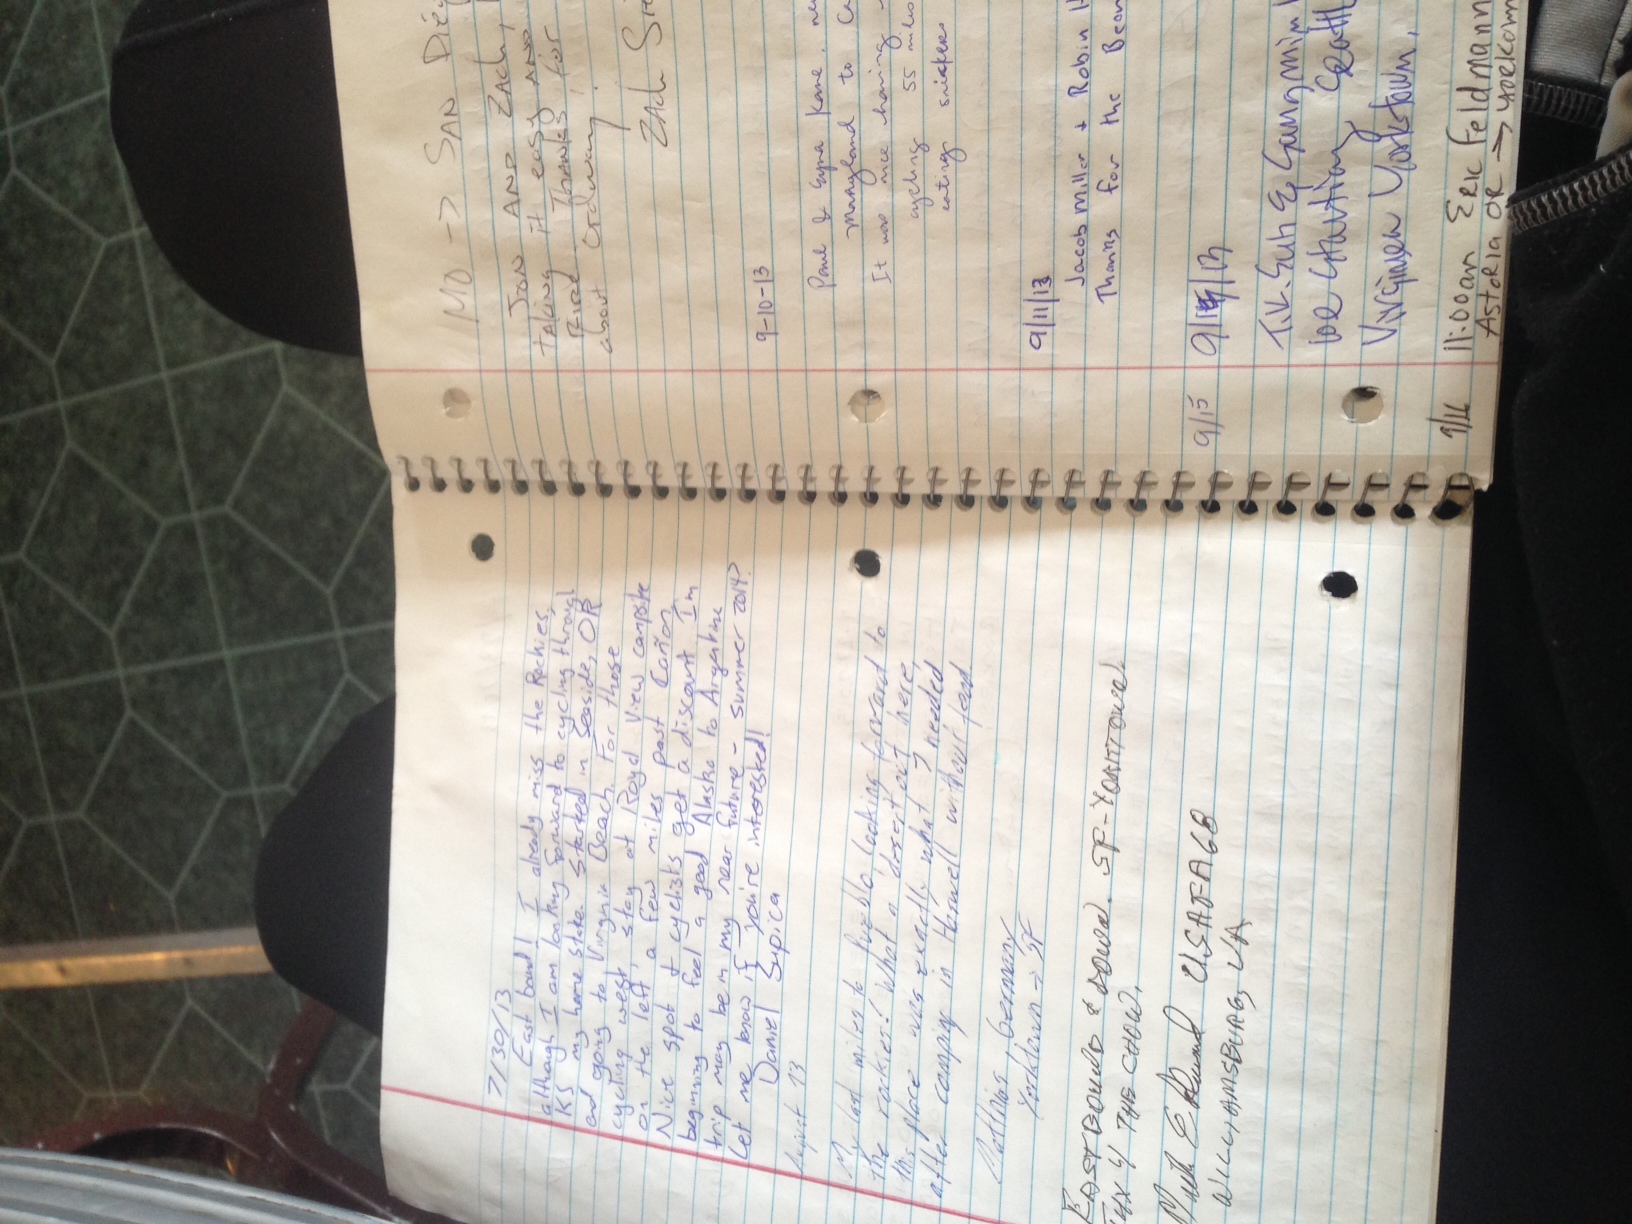 7/30/13
East bound! I already miss the Rockies,
although I am looking forward to cycling through
KS my home state. Started in Seaside, OR
and going to Virginia Beach. For those
cycling west, stay at Royal View campsite
on the left, a few miles past Cañon.
Nice spot + cyclists get a discount I'm
beginning to feel a good Alaska to Argentina
trip may be in my near future - Summer 2014?
Let me know if you're interested!
Daniel Supica
August 13
My last miles to Pueblo, looking forward to
the rockies! What a desert out here,
this place was exactly what I needed
after camping in Haswell without food
Matthis, Germany
Yorktown -> SF
EASTBOUND & DOWN. SF - YORKTOWN.
THX 4 THE CHOW.
USAFA 68
WILLIAMSBURG, VA
MO -> SAN Dieg
JON AND ZACH,
taking it easy AND
Ride. Thanks for
about Ordway!
ZACH
9-10-13
Paul &
Maryland to Ca
It was nice having
cycling 55 miles
eating snickers
9/11/13
Jacob Miller + Robin H
Thanks for the Bean
9/15 9/15/13
T.K. Suh & Gangmin
we starting Seattl
Virginia Yorktown.
9/16 11:00am ERIK Feldmann
Astoria OR -> Yorktown